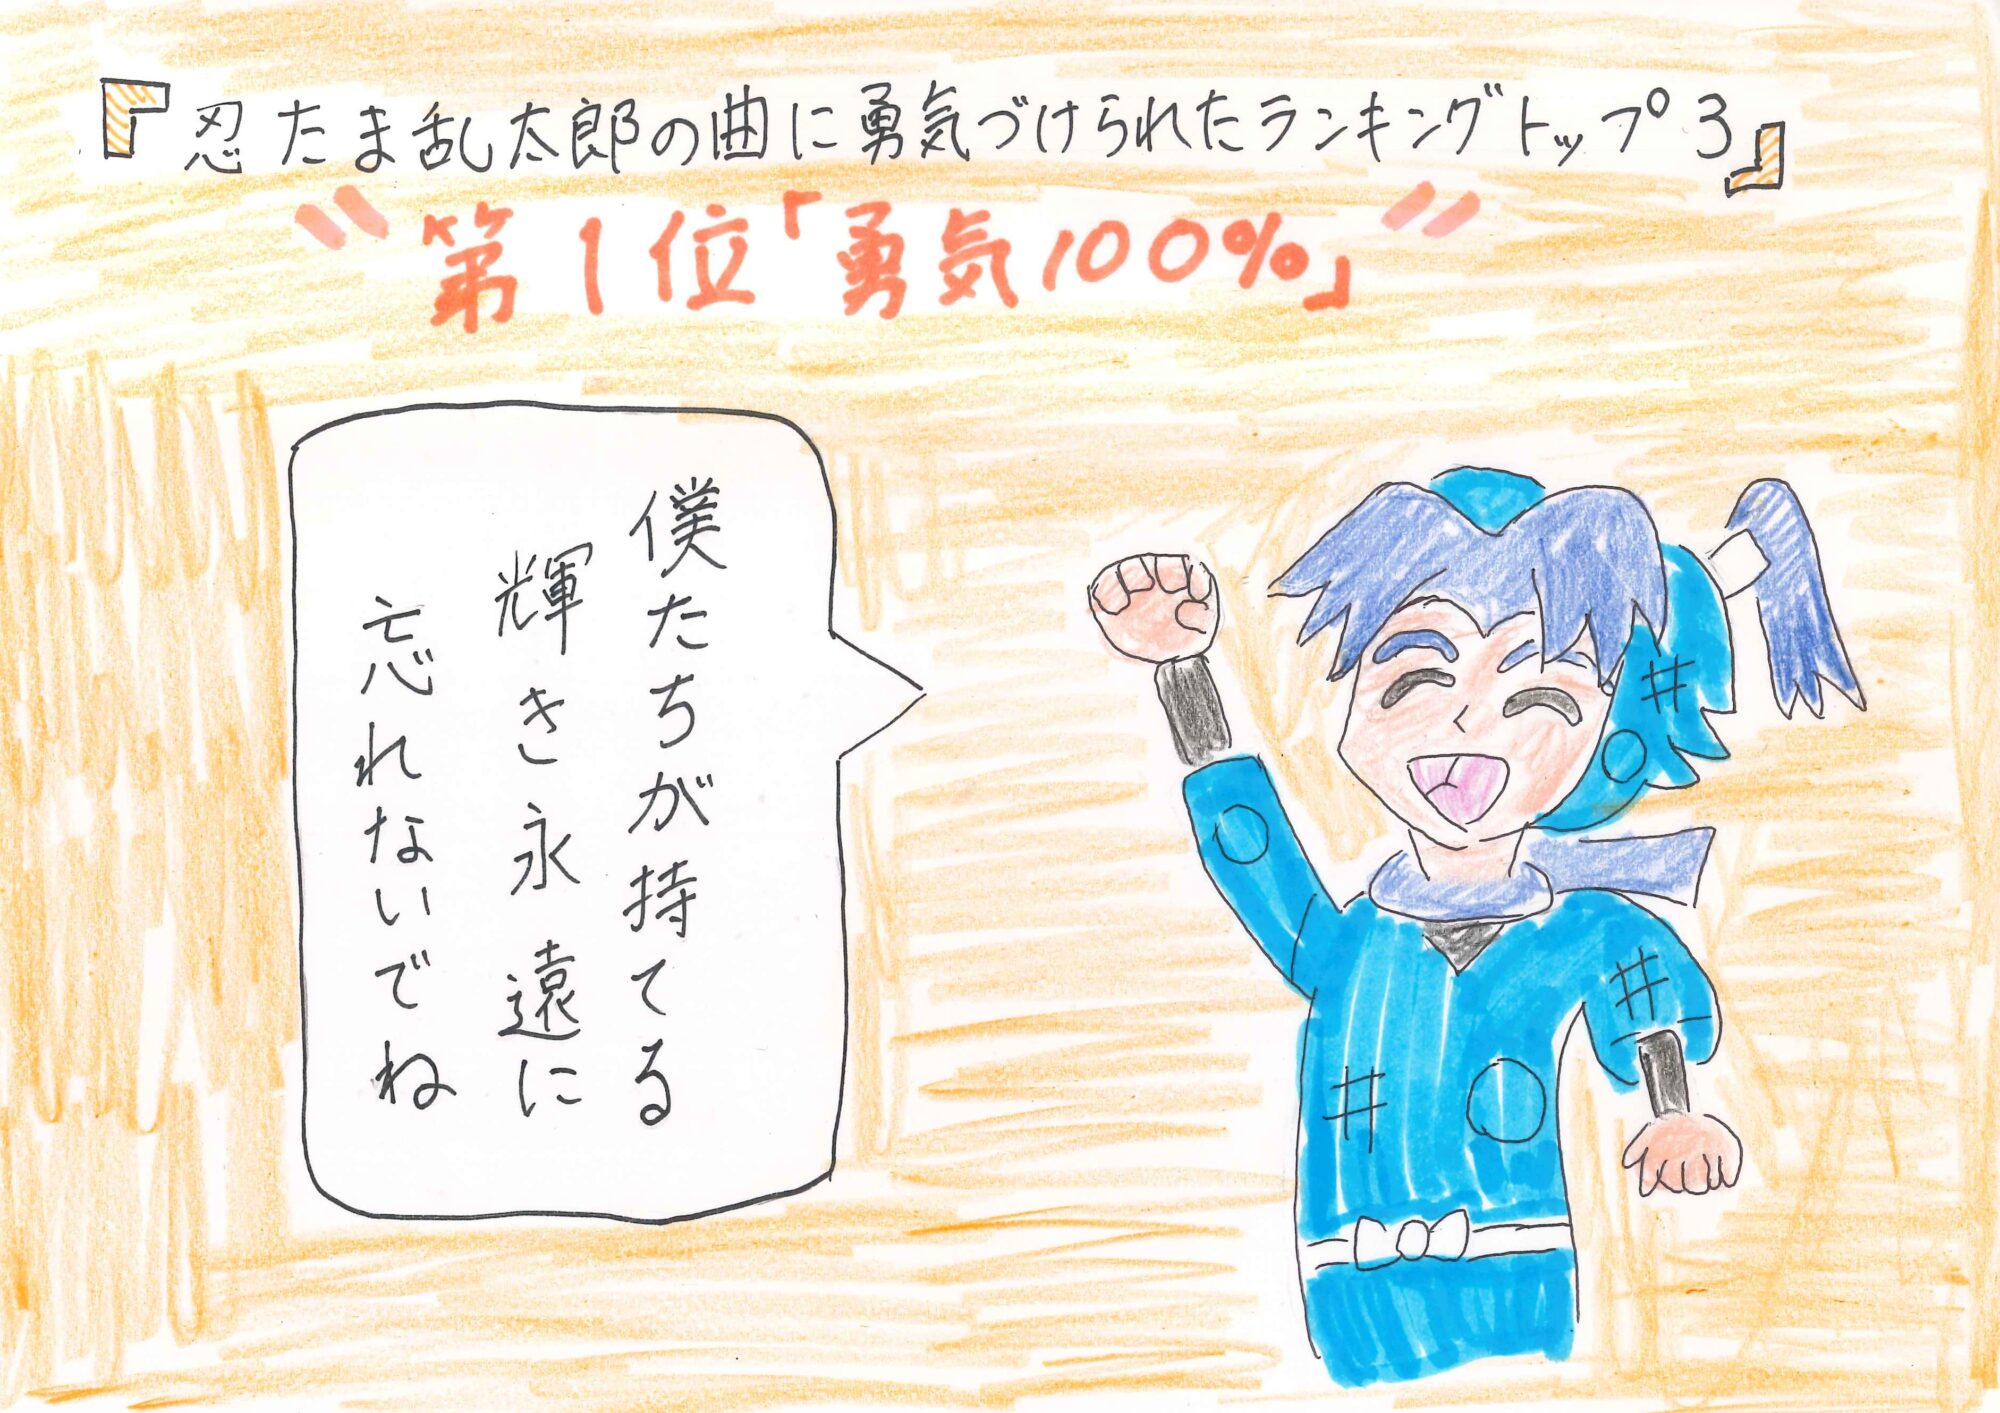 『忍たま乱太郎の曲に勇気づけられたランキングトップ3』
"第1位「勇気100%」"
僕たちが持てる
輝き永遠に
忘れないでね